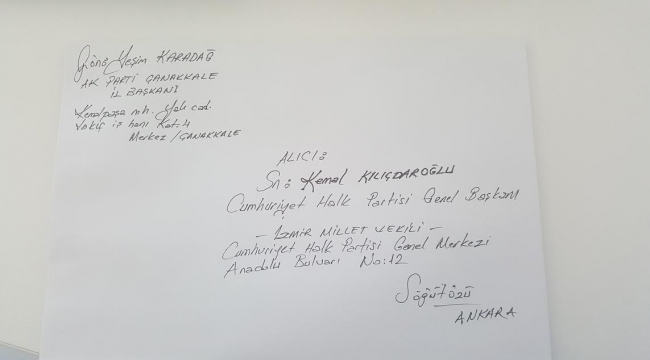 Gön: Yeşim KARADAĞ
AK PARTİ ÇANAKKALE
İL BAŞKANI
Kemalpaşa mh. Yalı cad.
Vakıf iş hanı Kat:4
Merkez/ÇANAKKALE
ALICI:
Sn: Kemal KILIÇDAROĞLU
Cumhuriyet Halk Partisi Genel Başkanı
- İZMİR MİLLET VEKİLİ -
Cumhuriyet Halk Partisi Genel Merkezi
Anadolu Bulvarı No:12
Söğütözü
ANKARA